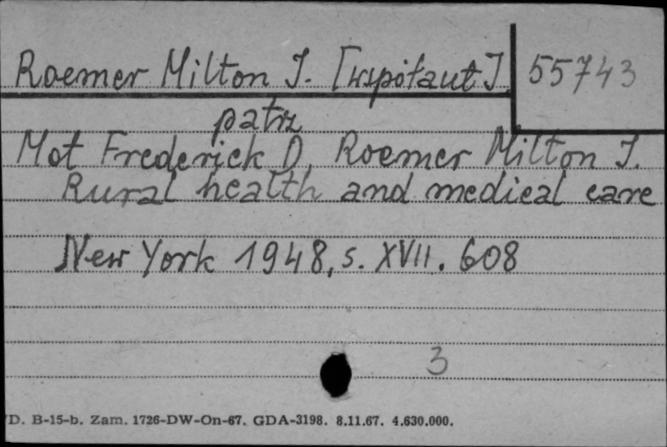 Roemer Milton J. [współaut] 55743
patrz
Mot Frederick D, Roemer Milton J.
Rural health and medical care
New York 1948, s. XVII. 608
3
D. B-15-b. Zam. 1726-DW-On-67. GDA-3198. 8.11.67. 4.630.000.